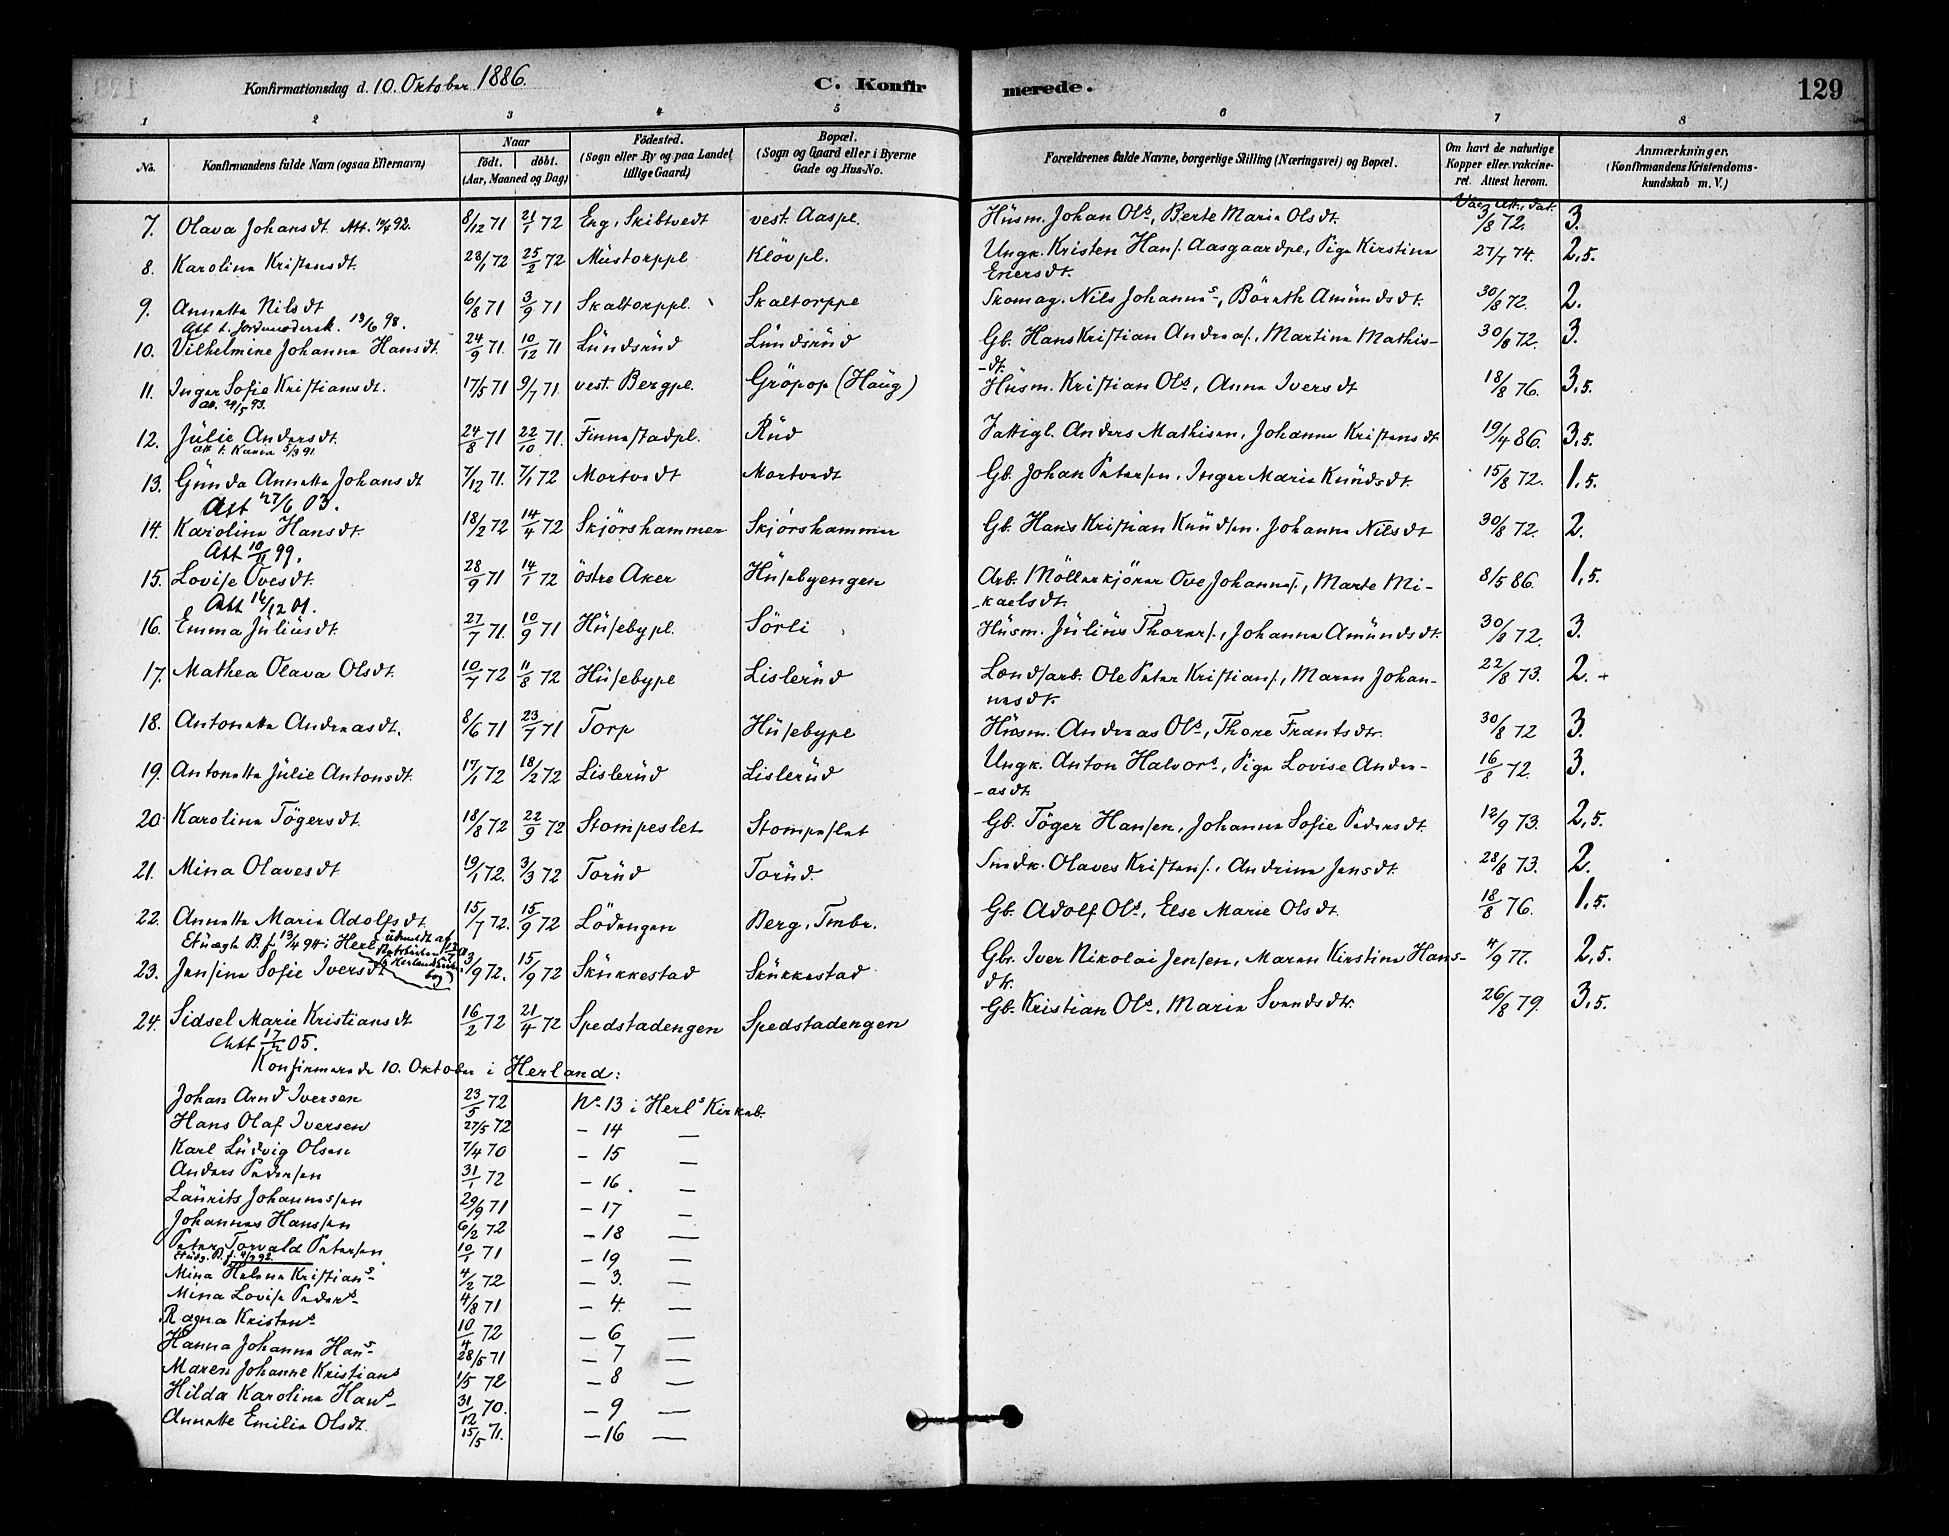 Konfirmationsdag d. 10. Oktober 1886. C. Konfirmerede. 129
1 2 3 4 5 6 7 8
No. Konfirmandens fulde Navn (ogsaa Efternavn) Naar født. døbt. (Aar, Maaned og Dag) Födested. (Sogn eller By og paa Landet tillige Gaard) Bopæl. (Sogn og Gaard eller i Byerne Gade og Hus-No. Forældrenes fulde Navne, borgerlige Stilling (Næringsvei) og Bopæl. Om havt de naturlige Kopper eller vakcineret. Attest herom. Anmærkninger, (Konfirmandens Kristendomskundskab m. V.)
Vac. Att. dat.
7. Olava Johansdt. Att. 92. 8/12 71 21/1 72 Erg, Skibtvedt vest. Aaspl. Husm. Johan Ols, Berte Marie Olsdt. 3/8 72. 3.
8. Karoline Kristensdt. 28/1 72 25/2 72 Mustorppl. Klövpl. Ungk. Kristen Hans. Aasgaardpl., Pige Kirstine Enersdt. 27/7 74. 2,5.
9. Annette Nilsdt 6/8 71 3/9 71 Skaltorppl. Skaltorppe Skomag. Nils Johanns-, Börethe Amundsdt. 30/8 72. 2.
Att t. Jordmodersk. 13/6 98.
10. Vilhelmine Johanne Hansdt. 24/9 71. 10/12 71 Lundsrud Lundsrud Gb. Hans Kristian Andreas., Martine Mathis-dt. 30/8 72. 3.
11. Inger Sofie Kristiansdt. 17/5 71 9/7 71 vest. Bergpl. Gröpop (Haug) Husm. Kristian Ols, Anne Iversdt 18/8 76. 3,5.
Att. 29/5 93.
12. Julie Andersdt. 24/8 71 22/10 71. Finnestadpl. Rud Fattigl. Anders Mathisen, Johanne Kristensdt 19/4 86. 3,5.
Att t. 5/3 91
13. Gunda Annette Johansdt 7/12 71. 7/1 72 Mortvedt Mortvedt Gb. Johan Petersen, Inger Marie Knudsdt. 15/8 72. 1,5.
Att 27/6 03.
14. Karoline Hansdt. 18/2 72 14/4 72 Skjörshammer Skjörshammer Gb. Hans Kristian Knudsen. Johanne Nilsdt 30/8 72. 2.
Att 10/11 99.
15. Lovise Ovesdt. 28/9 71 14/1 72 östre Aker Husebyengen Arb. Möllerkjörer Ove Johanness., Marte Mi-kaelsdt. 8/5 86. 1,5.
Att 16/12 01.
16. Emma Juliusdt. 27/7 71. 10/9 71 Husebypl. Sörli Husm. Julius Thorers., Johanne Amundsdt. 30/8 72. 3.
17. Mathea Olava Olsdt. 10/7 72 11/8 72 Husebype Lislerud Londsarb. Ole Peter Kristians., Maren Johan-nesdt. 22/8 73. 2.
18. Antonette Andreasdt. 8/6 71 23/7 71 Torp Husebype Husm. Andreas Ols, Thore Frantsdtr. 30/8 72 3.
19. Antonette Julie Antonsdt. 17/1 72 18/2 72 Lislerud Lislerud Ungk. Anton Halvors, Pige Lovise Andre-asdt. 16/8 72. 3.
20. Karoline Tögersdt. 18/8 72 22/9 72 Stompeslet Stompeslet Gb. Töger Hansen, Johanne Sofie Pedersdt. 12/9 73. 2,5.
21. Mina Olavesdt 19/1 72. 3/3 72 Torud Torud. Smdk. Olaves Kristens., Andrine Jensdt. 28/8 73. 2.
22. Annette Marie Adolfsdt. 15/7 72. 15/9 72 Lödengen Berg, Tmbr. Gb. Adolf Ols, Else Marie Olsdt. 18/8 76. 1,5.
Etuægte B. f. 13/4 94 i Herl.
23. Jensine Sofie Iversdt 3/9 72. 15/9 72 Skukkestad Skukkestad Gbr. Iver Nikolai Jensen, Maren Kirstine Hans-dt. 4/9 77. 2,5.
24. Sidsel Marie Kristiansdt 16/2 72 21/4 72 Spedstadengen Spedstadengen Gb. Kristian Ols, Marie Svendsdtr. 26/8 79. 3,5.
Att 05.
Konfirmerede 10. Oktober i Herland:
Johan Arnd Iversen 23/5 72 No. 13 i Herls Kirkeb.
Hans Olaf Iversen 27/5 72 - 14 —
Karl Ludvig Olsen 7/4 70 - 15 —
Anders Pedersen 31/1 72 - 16. —
Laurits Johannessen 29/9 71 - 17 —
Johannes Hanssen 6/2 72 - 18 —
Peter Torvald Petersen 10/1 71 - 19 —
Mina Helene Kristians- 4/2 72 - 3. —
Mina Lovise Peders- 4/8 71 - 4. —
Ragna Kristens 10/4 72 - 6 —
Hanna Johanne Hans- 28/5 71 - 7 —
Maren Johanne Kristians 1/5 72 - 8 —
Hilda Karoline Hans- 31/12 70. - 9 —
Annette Emilie Olsdt. 15/5 71. - 16 —